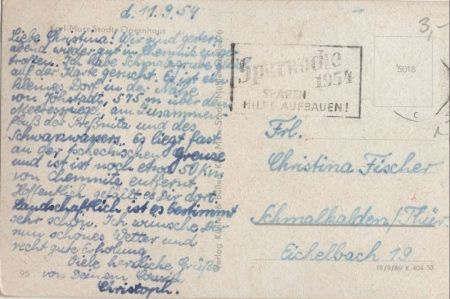 d. 11.9.54
Karl-Marx-Stadt, Opernhaus
Liebe Christina! Wir sind gestern
abend wieder gut in Chemnitz einge-
troffen. Ich habe Schmalzgrube gleich
auf der Karte gesucht. Es ist ein
kleines Dorf in der Nähe
von Jöhstadt, 575 m über dem
Meeresspiegel, am Zusammen-
fluß der Preßnitz und des
Schwarzwassers. Es liegt fast
an der tschechischen Grenze
und ist noch etwa 50 Km
von Chemnitz entfernt.
Hoffentlich gefällt es Dir dort.
Landschaftlich ist es bestimmt
sehr schön. Ich wünsche Dir
nun schönes Wetter und
recht gute Erholung.
Viele herzliche Grüße
von Deinem Cousin
Christoph.
95
Sparwoche
1954
SPAREN
HILFT AUFBAUEN!
5018
C
3,-
Frl.
Christina Fischer
Schmalkalden/Thür.
Eichelbach 19
III/9/69 K. 404 53